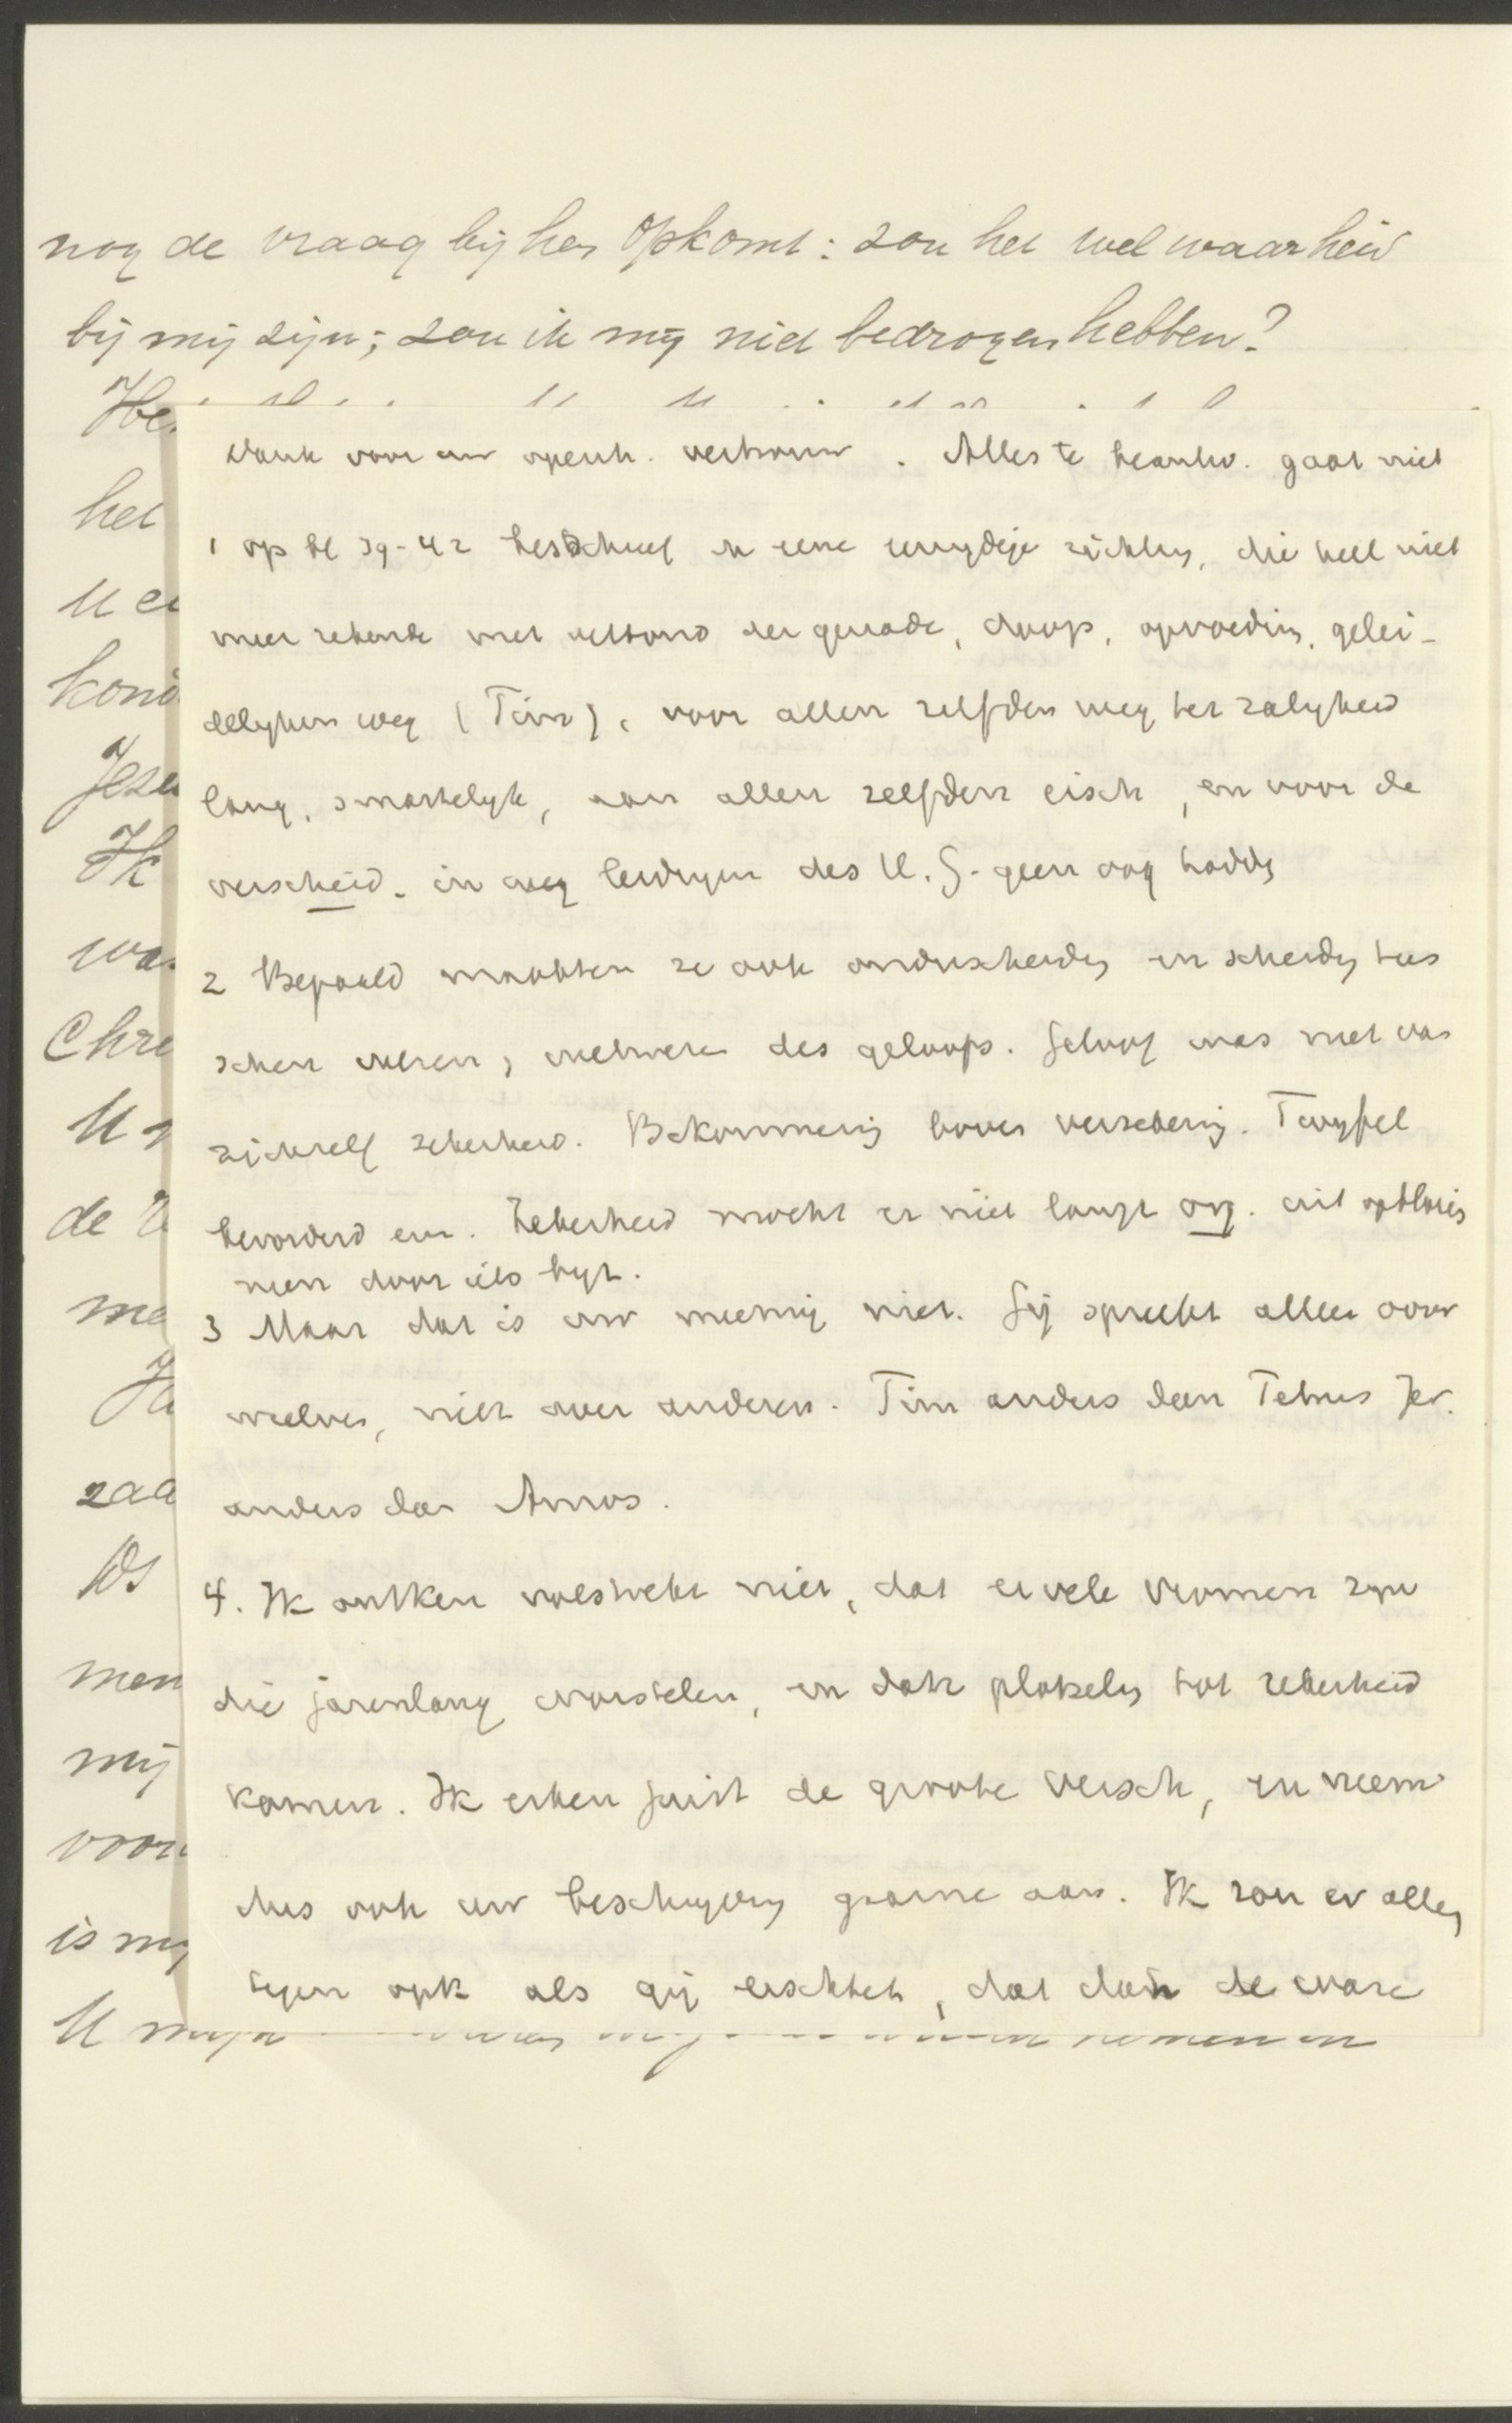 nog de vraag bij hen opkomt: zou het wel waarheid
bij mij zijn; zou ik mij niet bedrogen hebben?
He
dank voor uw openh. vertrouw . Alles te beantw. gaat niet
het
1 op bl 39-42 beschreef ik eene eenzijdige richting, die heel niet
U
meer rekende met verbond der genade, doop, opvoeding, gelei-
kon
delijken weg (Tim), voor allen zelfden weg ter zaligheid
Jezu
lang, smartelijk, aan allen zelfden eisch, en voor de
Ik
verscheid. in weg leidingen des H. G. geen oog hadde
wa
2 Bepaald maakten ze ook onderscheiding en scheiding tus
Chri
schen wezen, welwezen des geloofs. Geloof was niet van
U
zichzelf zekerheid. Bekommering boven verzekering. Twijfel
de
bevorderd enz. Zekerheid mocht er niet langz. org. uit opbloeien
men door iets bijz.
me
3 Maar dat is uw meening niet. Gij spreekt alleen over
uzelven, niet over anderen. Tim anders dan Paulus Jer.
zaa
anders dan Amos.
Ds
4. Ik ontken volstrekt niet, dat er vele vromen zijn
men
die jarenlang worstelen, en dan plotseling tot zekerheid
mij
komen. Ik erken juist de groote versch, en neem
voor
dus ook uw beschrijving gaarne aan. Ik zou er alleen
is mij
tegen opk als gij eischtet, dat dan de ware
U mijn nemen en